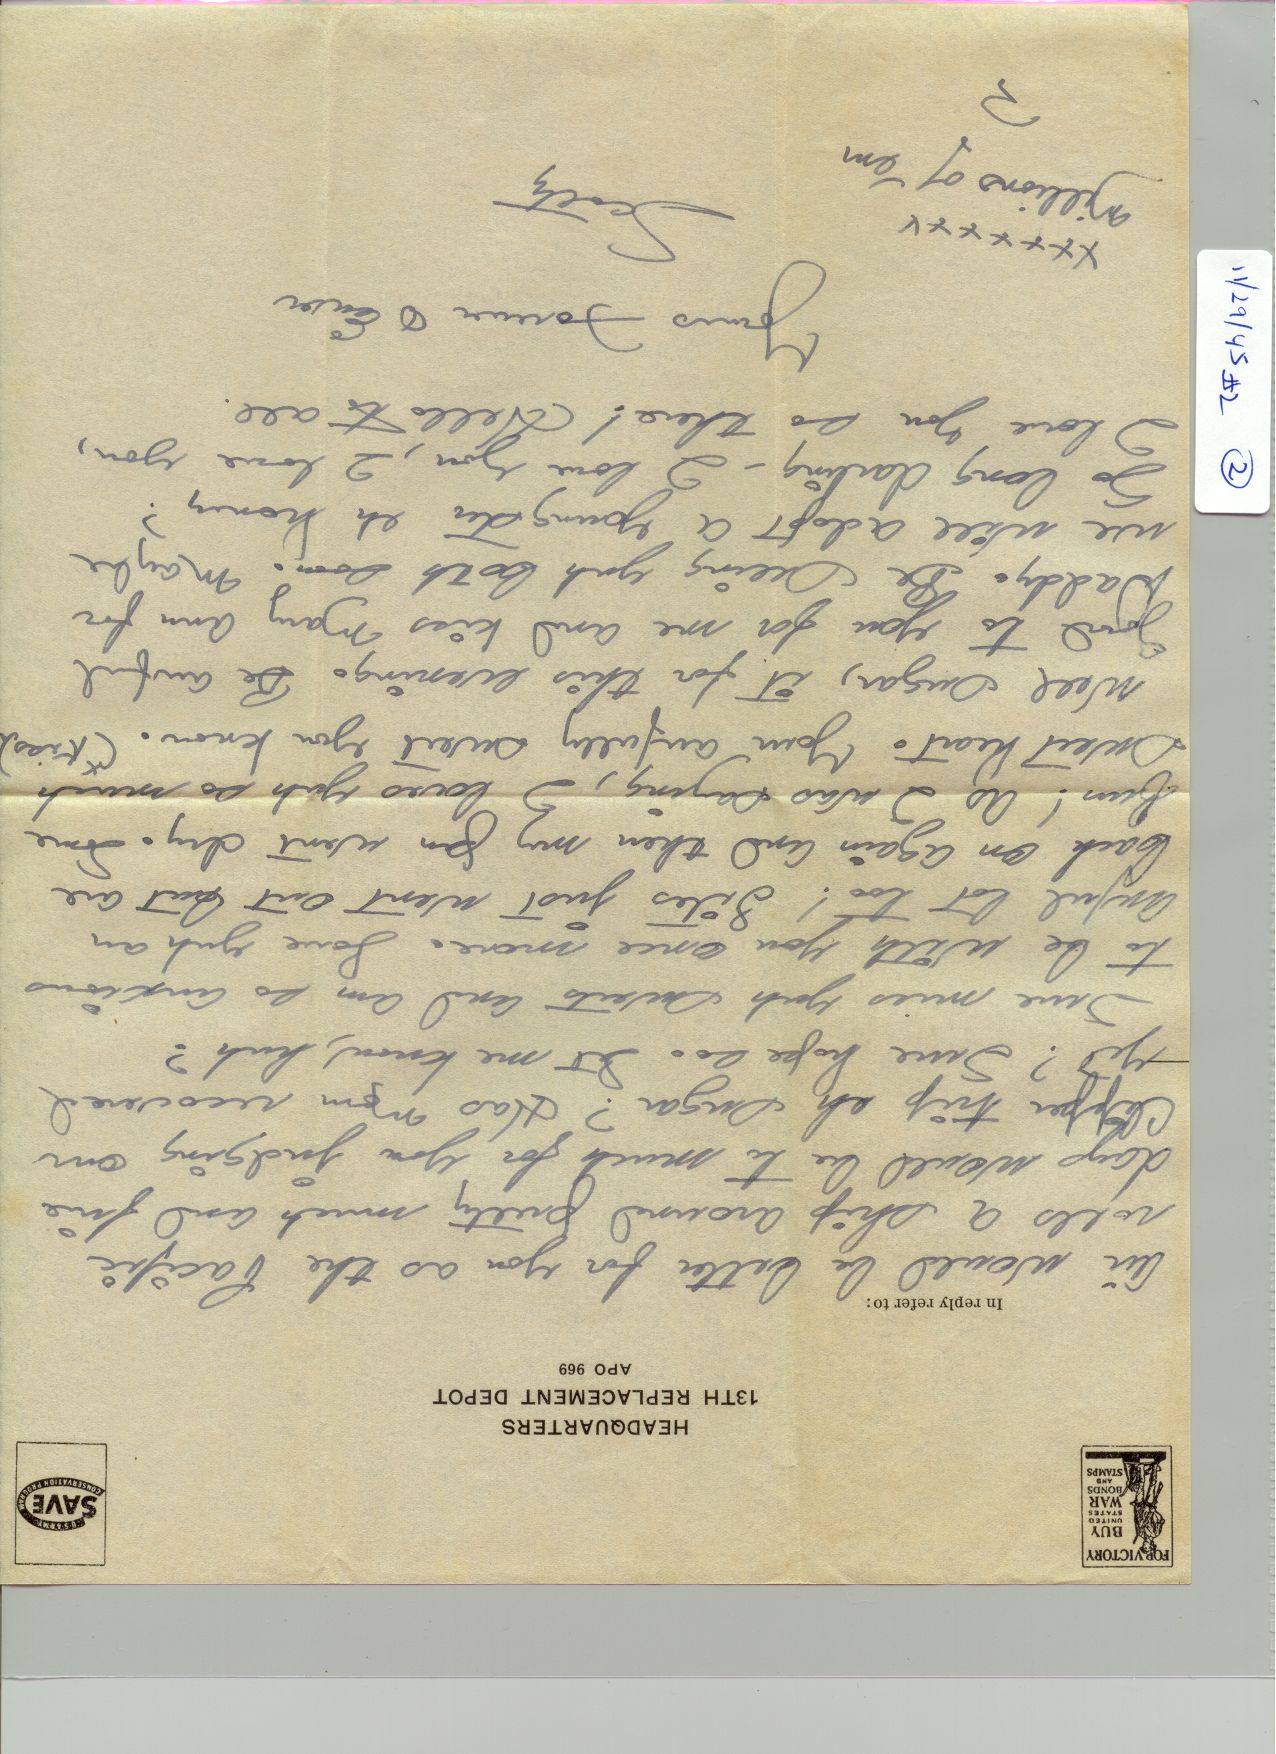 FOR VICTORY
BUY
UNITED
STATES
WAR
BONDS
AND
STAMPS
U.S. ARMY
SAVE
CONSERVATION PROGRAM
HEADQUARTERS
13TH REPLACEMENT DEPOT
APO 969
In reply refer to:
Air would be better for you as the Pacific
rolls a ship around pretty much and five
days would be to much for you judging on
Clipper trip eh Sugar? Has Mom recovered
yet? Sure hope so. Let me know, huh?
Sure miss yuh sweets and am so anxious
to be with you once more. Love yuh an
awful lot too! Lites just went out but are
back on again and then my pen went dry. Some
fun! As I was saying, I loves yuh so much
Sweet heart. Your awfully sweet you know. (Kiss)
Well Sugar, it for this evening. Be awful
good to you for me and kiss Mary Ann for
Daddy. Be seeing yuh both soon. Maybe
we will adopt a youngster eh honey?
So long darling - I love you, I love you,
I love you so there! (Hello to all.
Yours Forever & Ever
Scotty
xxxxxxx
Millions of em
11/29/45 #2 2